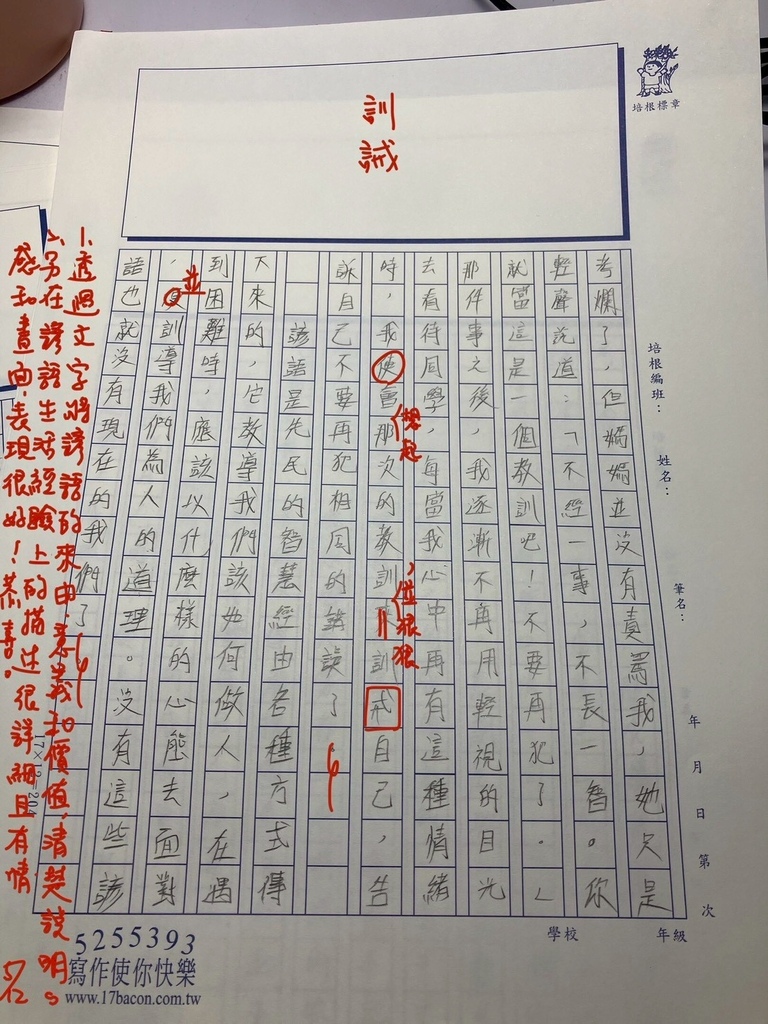 訓
誡
培根標章
培根編班：
姓名：
筆名：
年
月
日
第
次
年級
學校
考爛了，但媽媽並沒有責罵我，她只是
輕聲說道：「不經一事，不長一智。你
就當這是一個教訓吧！不要再犯了。」
那件事之後，我逐漸不再用輕視的目光
去看待同學，每當我心中再有這種情緒
時，我便會那次的教訓 訓戒自己，告
想起
，並狠狠
訴自己不要再犯相同的錯誤了
諺語是先民的智慧經由各種方式得
下來的，它教導我們該如何做人，在遇
到困難時，應該以什麼樣的心態去面對
， 訓導我們為人的道理。沒有這些諺
並
語也就沒有現在的我們了
17×12=204
1.透過文字將諺語的來由、意義和價值，清楚說明。
2.另在諺語生活經驗上的描述很詳細且有情
感和畫面，表現很好！恭喜。
5/12
5255393
寫作使你快樂
www.17bacon.com.tw